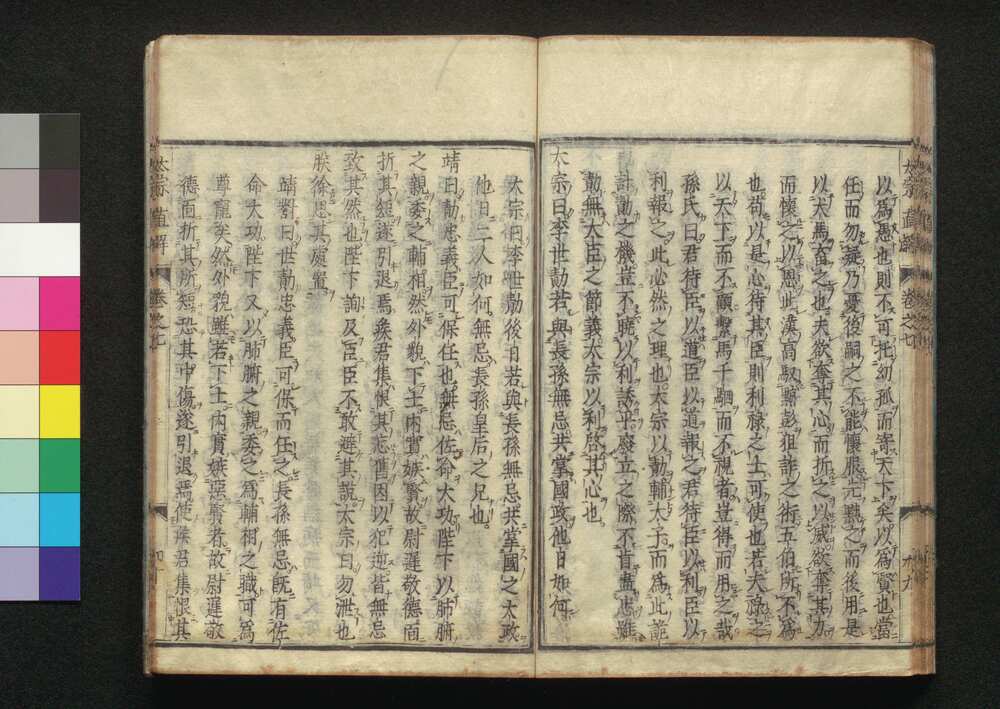 以爲愚也則不可托幼孤而寄天下矣以爲賢也當
任而勿疑乃憂後嗣之不能懷服先黜之而後用是
以犬馬畜之也夫欲奪其心而折之以威欲奪其力
而懷之以恩此漢高馭黥彭狙詐之術五伯所不爲
也苟以是心待其臣則利祿之士可使也若夫祿之
以天下而不顧繫馬千駟而不視者豈得而用之哉
孫氏曰君待臣以道臣以道報之君待臣以利臣以
利報之此必然之理也太宗以勣輔太子而爲此詭
計勣之機豈不曉以利誘乎廢立之際不肯盡忠雖
勣無大臣之節義太宗以利啓其心也
太宗曰李世勣若與長孫無忌共掌國政他日如何
太宗問李世勣後日若與長孫無忌共掌國之大政
他日二人如何無忌長孫皇后之兄也
靖曰勣忠義臣可保任也無忌佐命大功陛下以肺腑
之親委之輔相然外貌下士內實嫉賢故尉遲敬德面
折其短遂引退焉侯君集恨其忘舊因以犯逆皆無忌
致其然也陛下詢及臣臣不敢避其說太宗曰勿泄也
朕徐思其處置
靖對曰世勣忠義臣可保而任之長孫無忌既有佐
命大功陛下又以肺腑之親委之爲輔相之職可爲
尊寵矣然外貌雖若下士內實嫉惡賢者故尉遲敬
德面折其所短恐其中傷遂引退焉使侯君集恨其
直解
卷之七